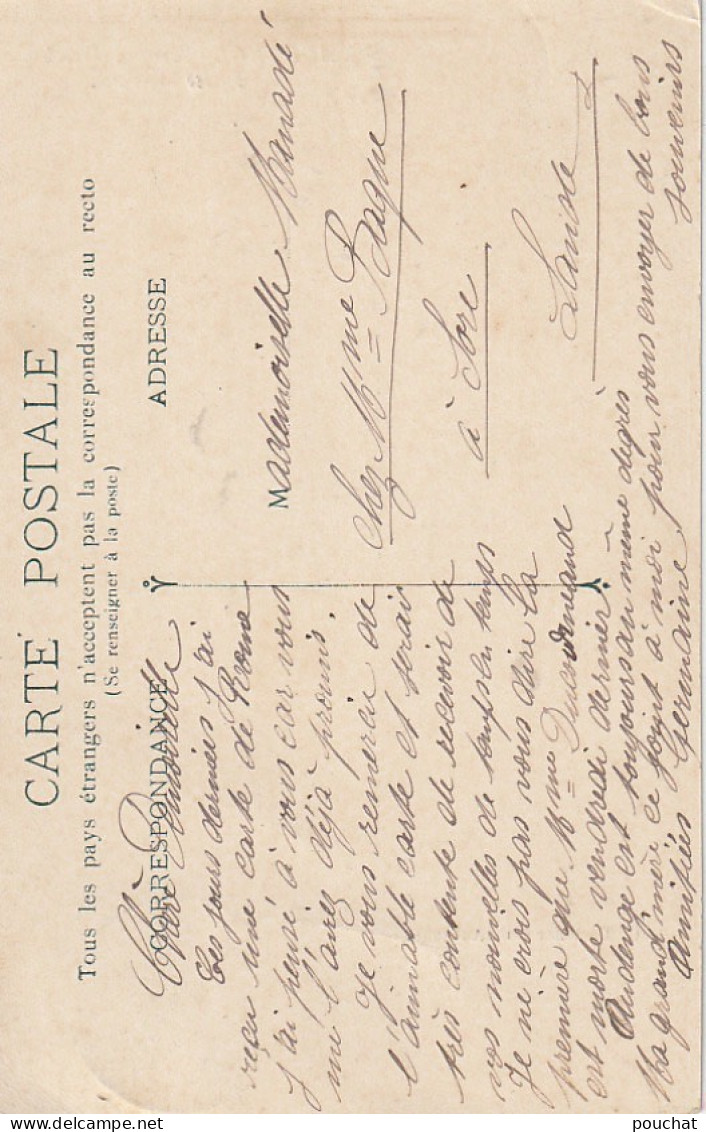 CARTE POSTALE
Tous les pays étrangers n'acceptent pas la correspondance au recto
(Se renseigner à la poste)
CORRESPONDANCE
ADRESSE
Chère
Ces jours derniers j'ai
reçu une carte de
j'ai pensé à vous car vous
me l'avez déjà promis.
Je vous remercie de
l'aimable carte et serai
très contente de recevoir de
vos nouvelles de temps en temps
Je ne crois pas vous dire la
première que Mme
est morte vendredi dernier
est toujours au même degrés
Ma grand'mère ce joint à moi pour vous envoyer de bons
souvenirs
Amitiés Germaine
Mademoiselle
chez Mme Baque
à Sore
Landes
pouchat